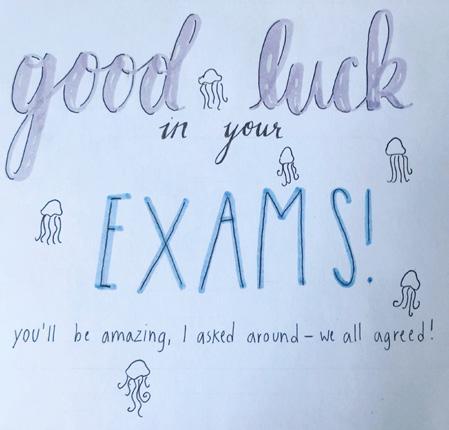 good luck
in your
EXAMS!
you'll be amazing, I asked around – we all agreed!